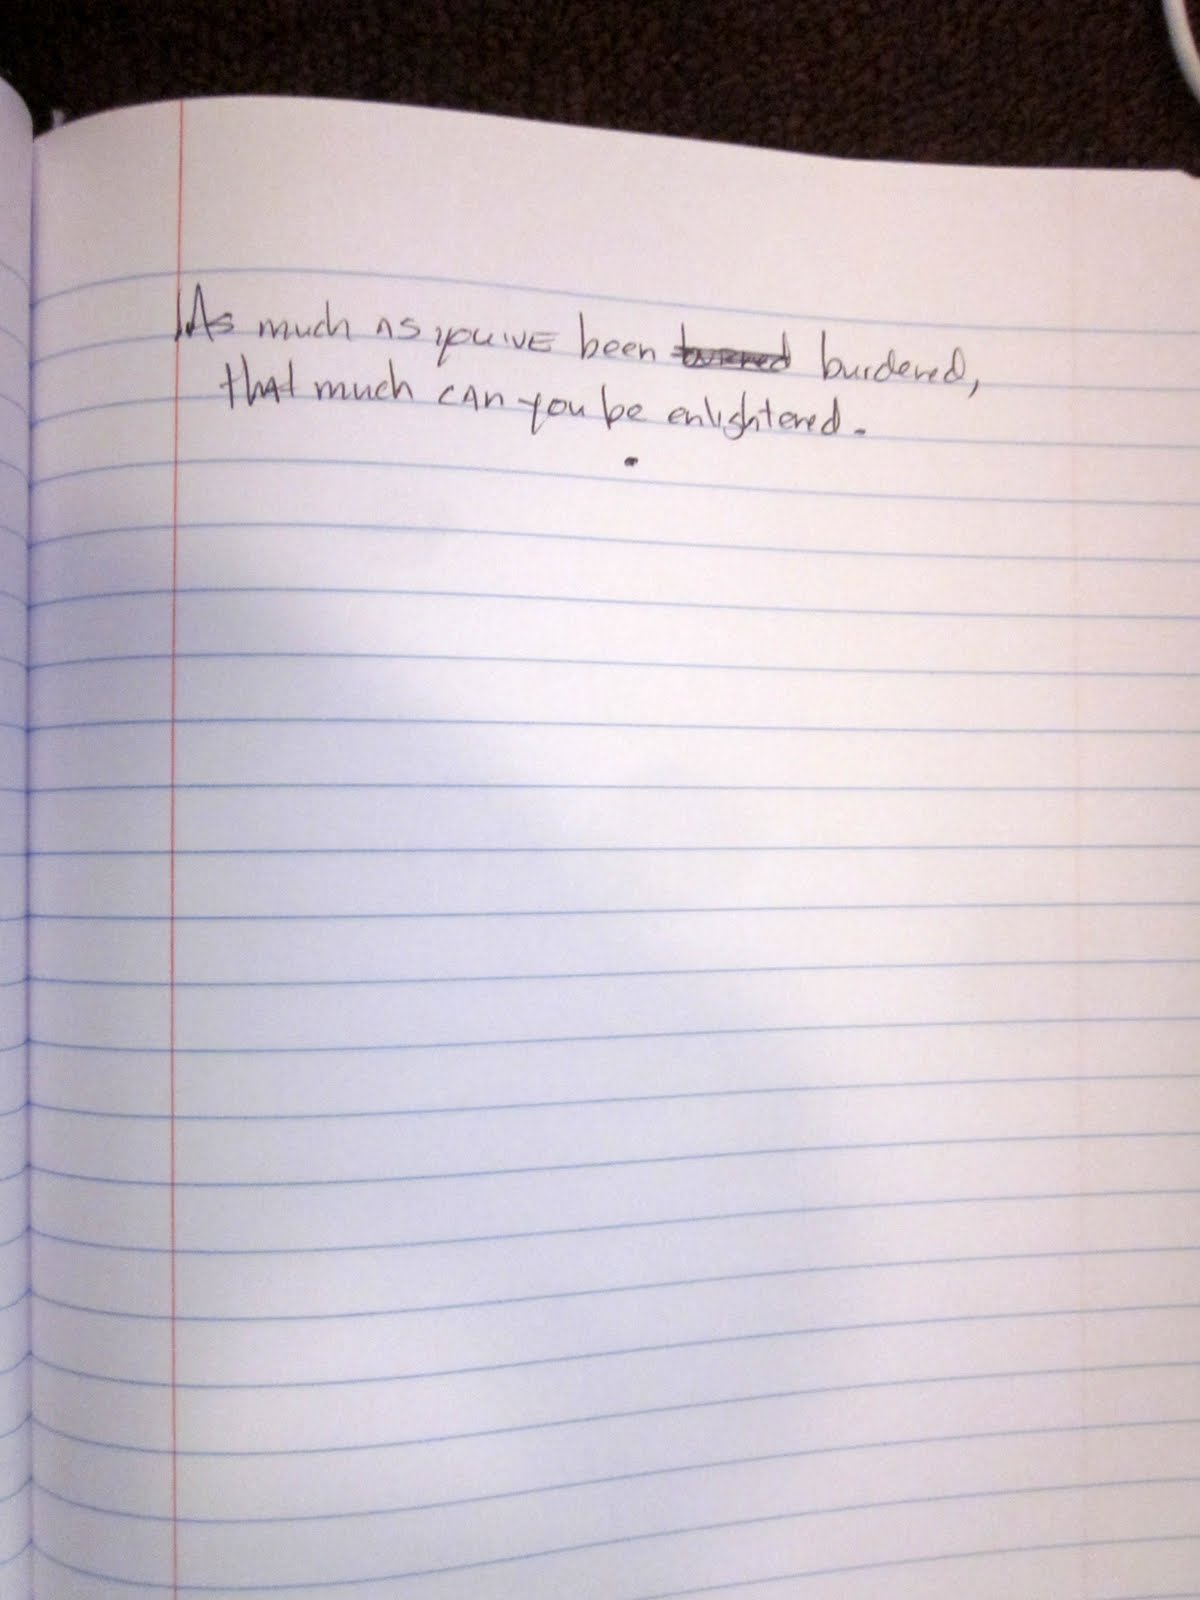 As much as you've been burdened,
that much can you be enlightened.